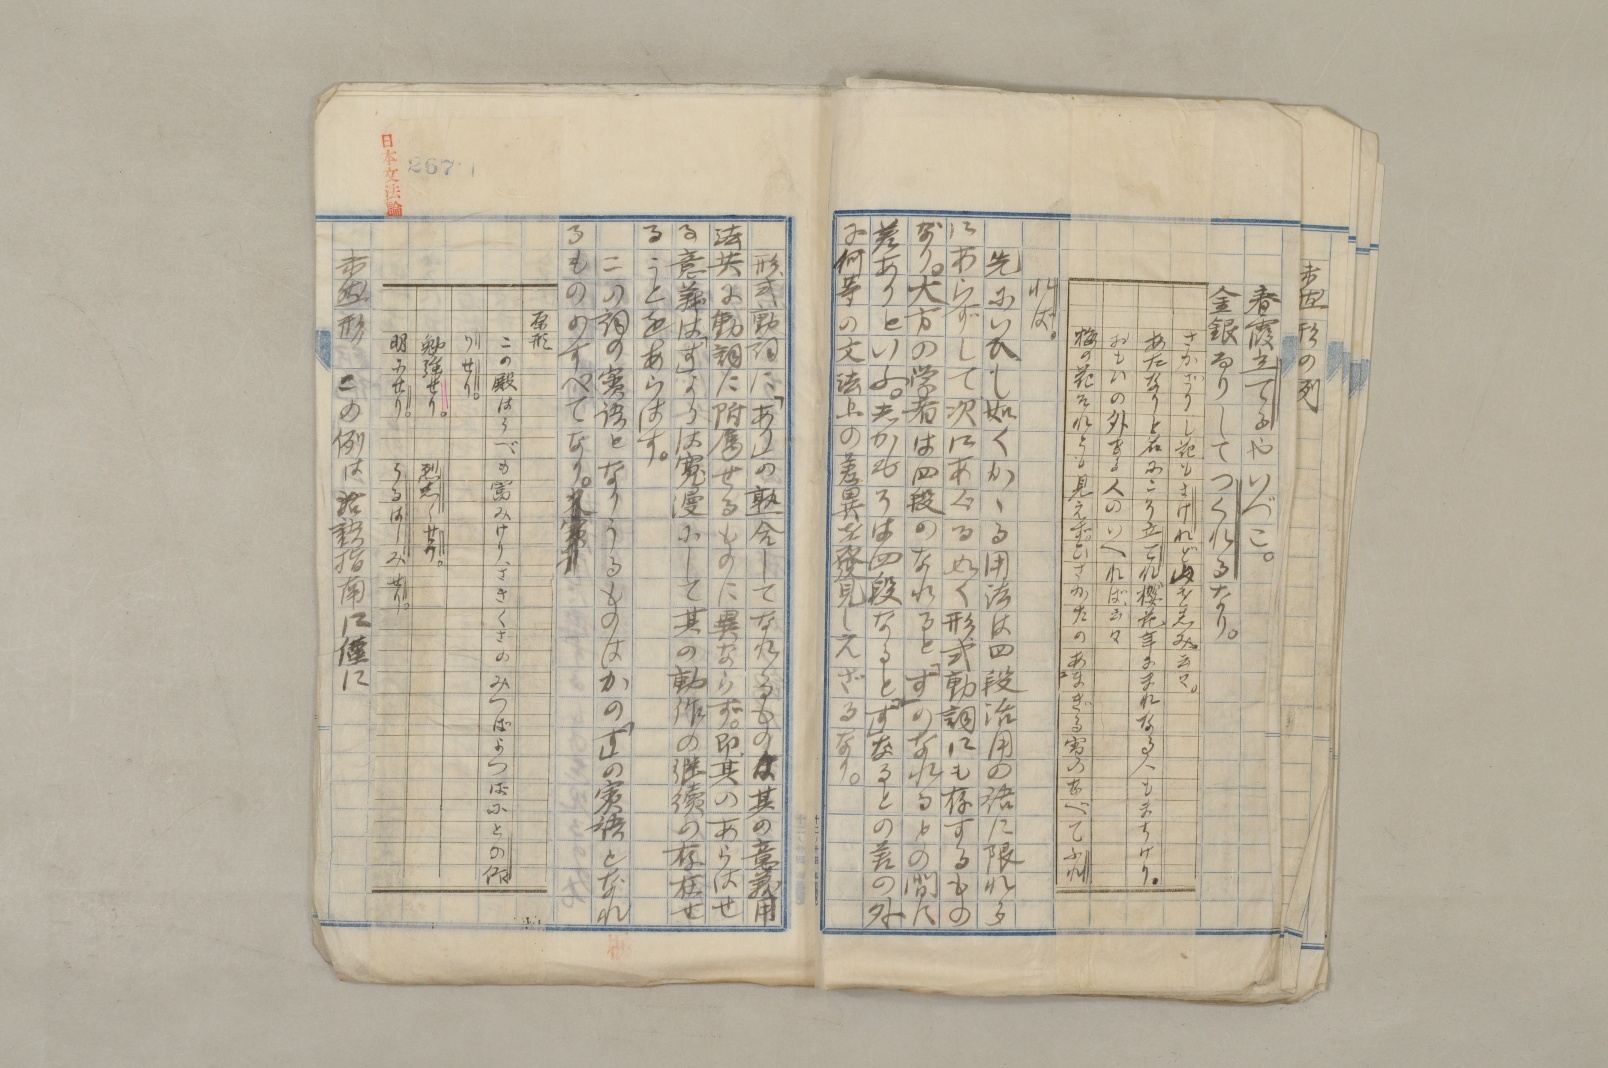 未然形の列
春霞立てるやいづこ。
金銀ありしてつくれるなり。
さかざりし花もさけれど山をしみ云々。
あだなりと名にこそ立てれ櫻花年にまれなる人もまちけり。
おもひの外なる人のいへれば云々
梅の花それとも見えず久かたのあまぎる雪のなべてふれ
れば。
先にいひし如くかゝる用法は四段活用の語に限れる
にあらずして次にあぐる如く形式動詞にも存するもの
なり。大方の学者は四段のなれると「す」のなれるとの間に
差ありといふ。しかれども四段なると「す」なるとの差の外
に何等の文法上の差異を發見しえざるなり。
形式動詞に「あり」の熟合してなれるものは其の意義用
法共に動詞に附属せるものに異ならず。即其のあらはせ
る意義は「す」よりは寛漫にして其の動作の継續の存在せ
ることをあらはす。
この詞の實語となりうるものはかの「す」の實語となれ
るものゝすべてなり。
日本文法論
267
原形
この殿はうべも富みけり、さきくさのみつばよつばにとの
り せり。
勉強せり。
明にせり。 うるはしみせり。
未然形 この例は 語指南に僅に